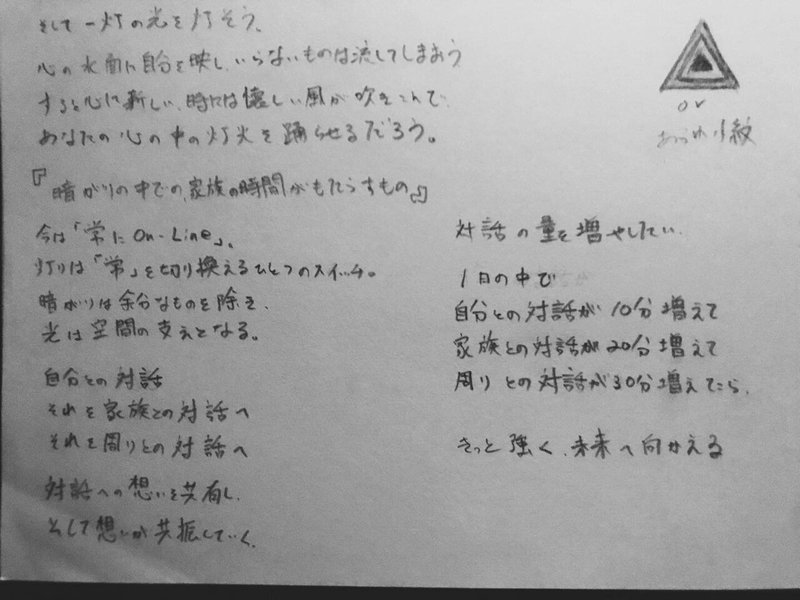 そして一灯の光を灯そう、
心の水面に自分を映し、いらないものは流してしまおう
すると心に新しい、時には懐しい風が吹きこんで、
あなたの心の中の灯火を踊らせるだろう。
『暗がりの中での、家族の時間がもたらすもの』
今は「常にOn-Line」、
灯りは「常」を切り換えるひとつのスイッチ。
暗がりは余分なものを除き、
光は空間の支えとなる。
自分との対話
それを家族との対話へ
それを周りとの対話へ
対話への想いを共有し、
そして想いが共振していく、
or
小紋
対話の量を増やしたい、
1日の中で
自分との対話が10分増えて
家族との対話が20分増えて
周りとの対話が30分増えてたら、
きっと強く、未来へ向かえる